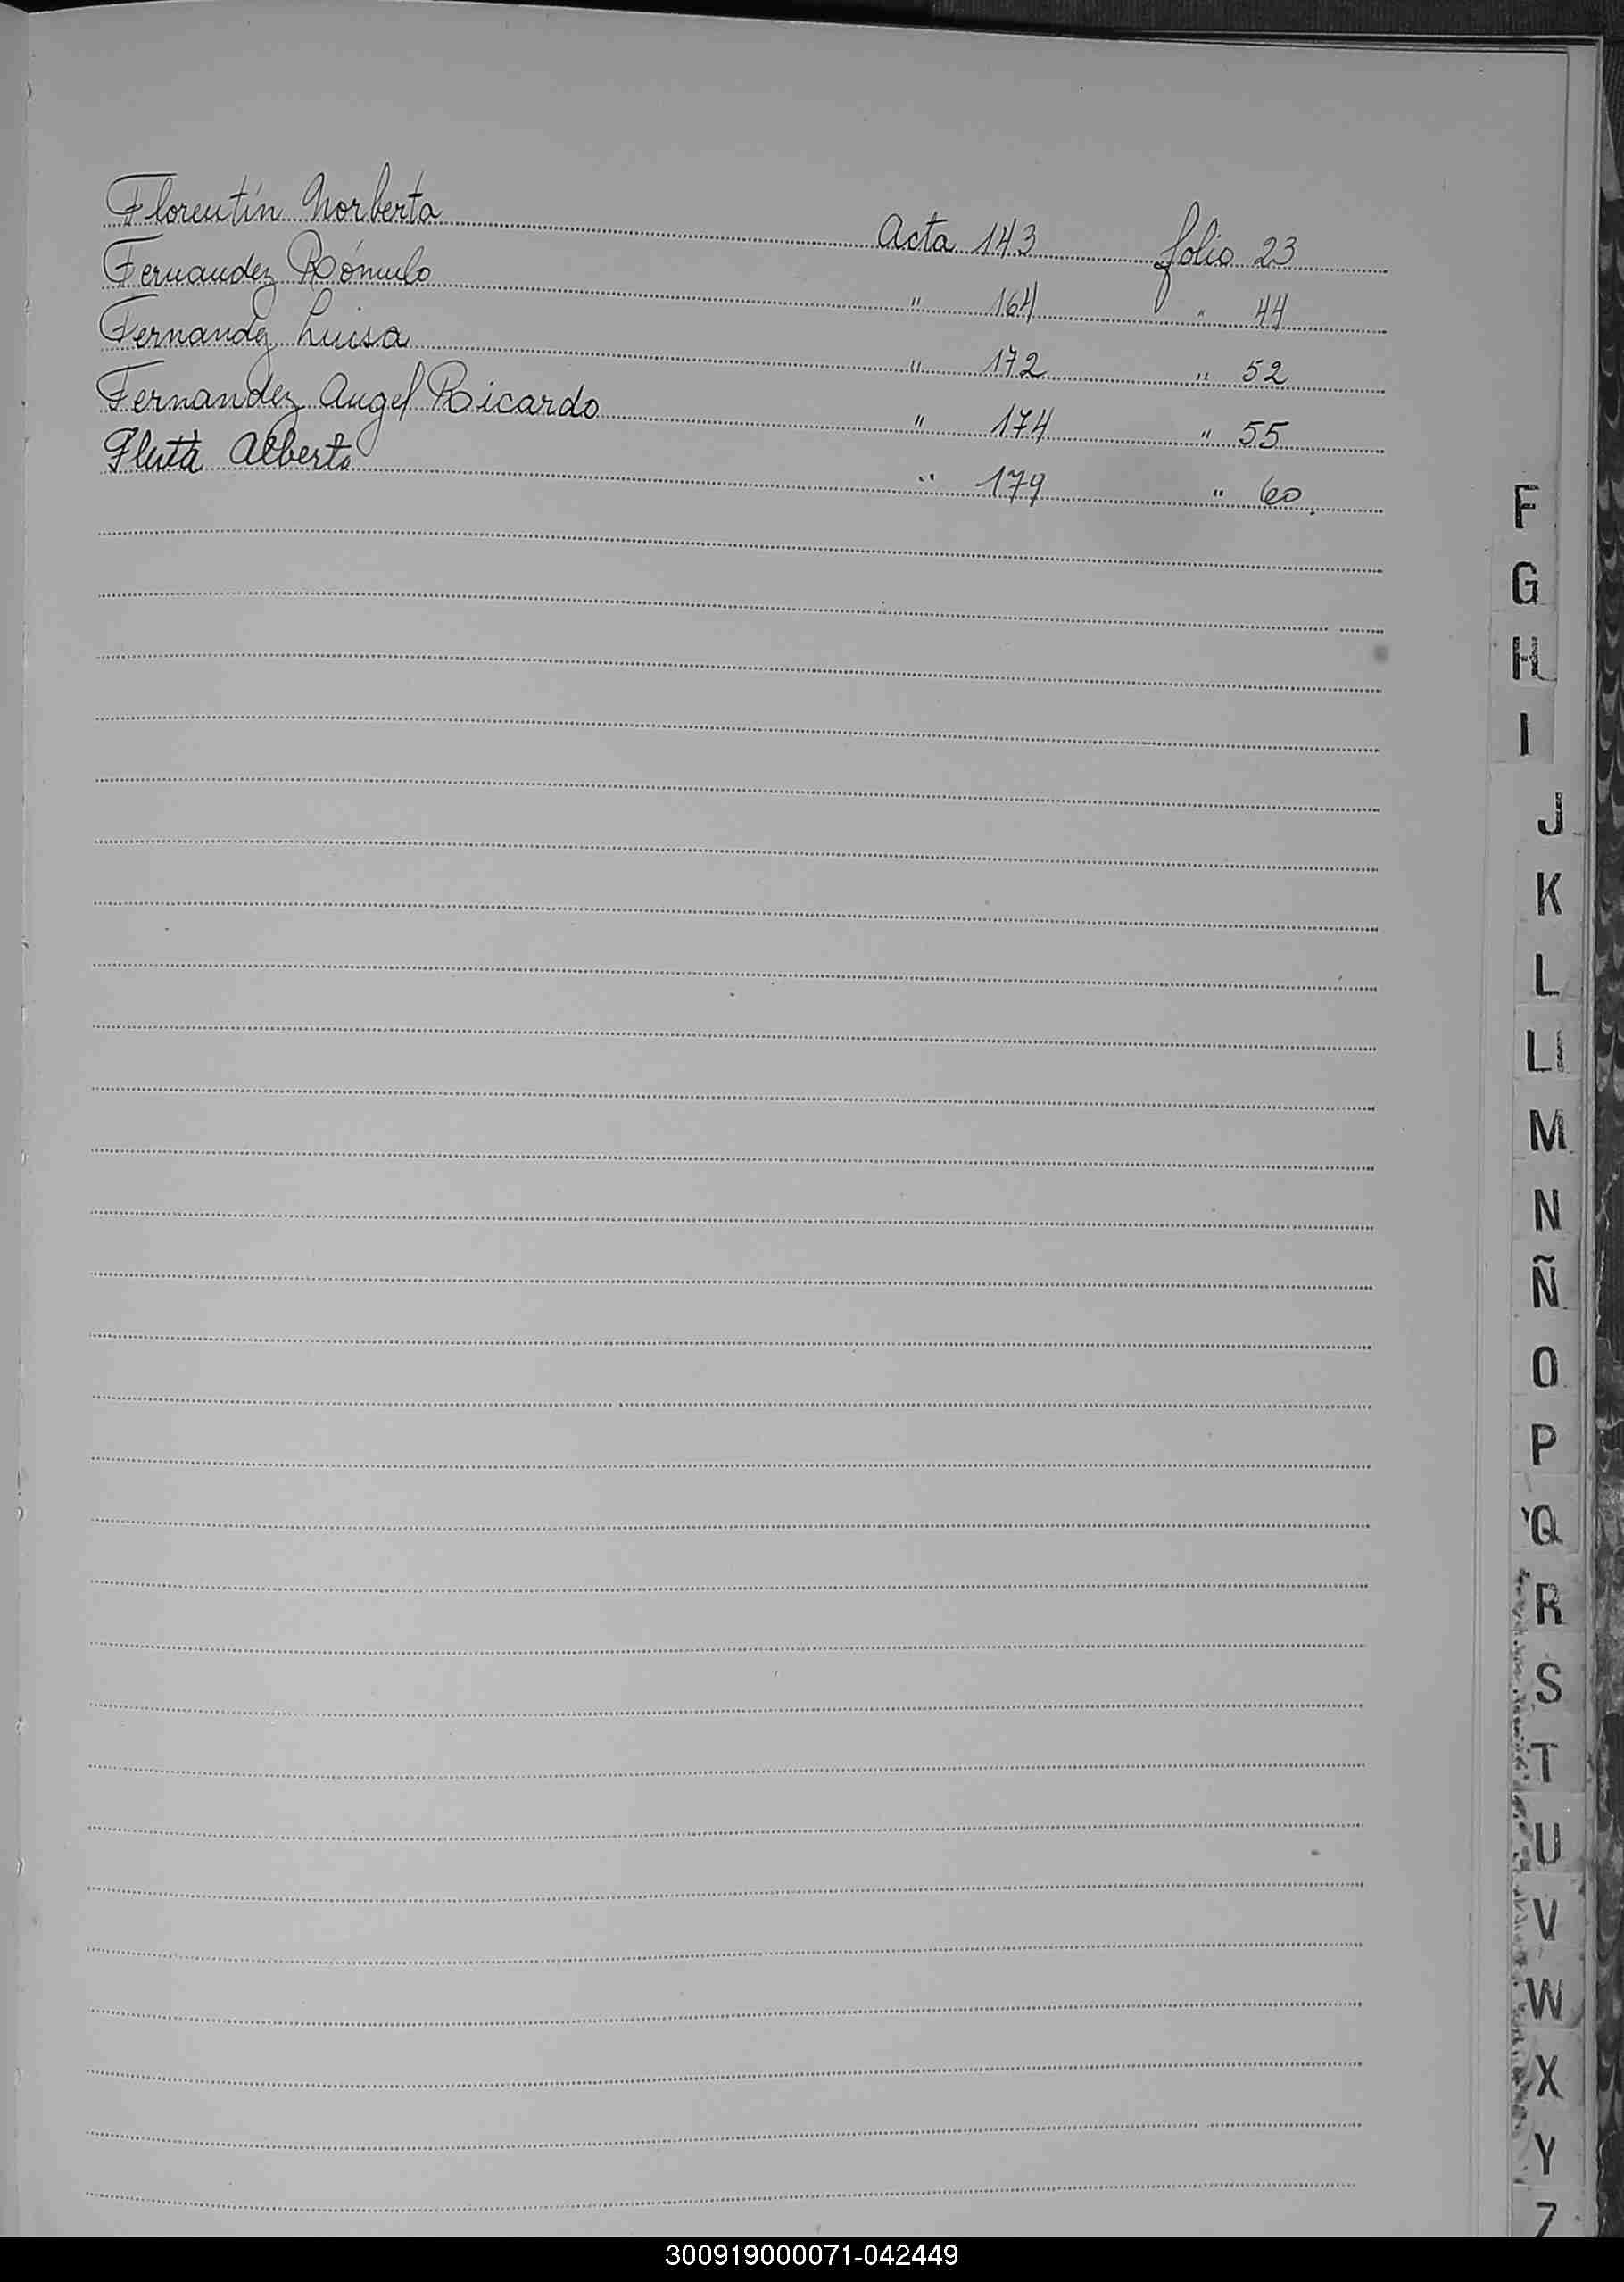 Florentín Norberta Acta 143 folio 23
Fernandez Rómulo " 164 " 44
Fernandez Luisa " 172 " 52
Fernandez Angel Ricardo " 174 " 55
Alberto " 179 " 60
F
G
H
I
J
K
L
LL
M
N
Ñ
O
P
Q
R
S
T
U
V
W
X
Y
Z
300919000071-042449